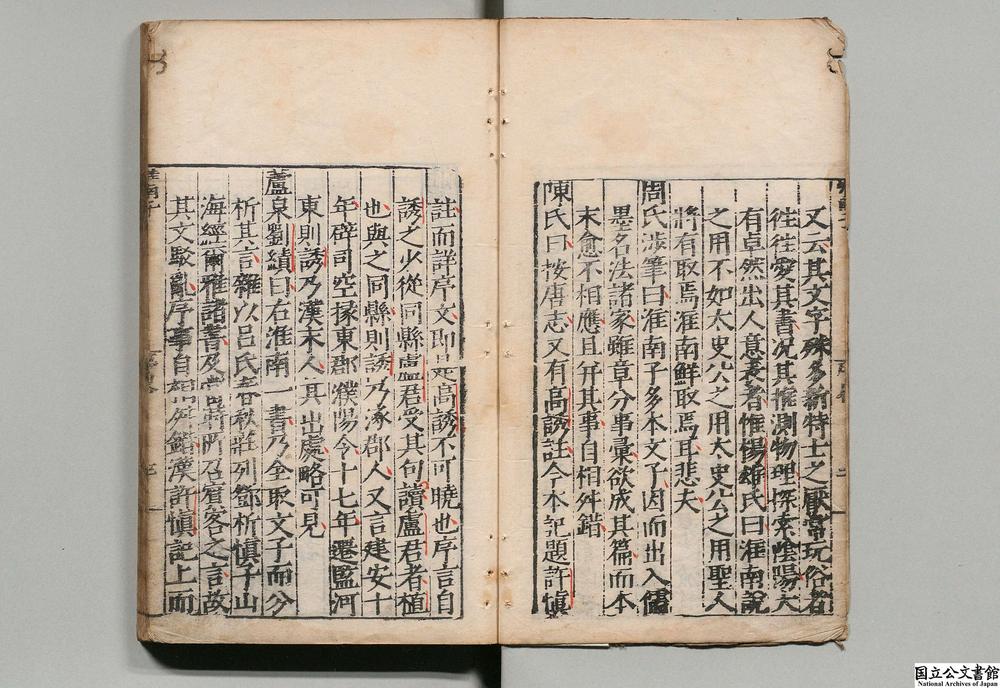 又云其文字殊多新特士之厭常玩俗者
徃徃愛其書况其推測物理探索陰陽大
有卓然出人意表者惟楊雄氏曰淮南說
之用不如太史公之用太史公之用聖人
將有取焉淮南鮮取焉耳悲夫
周氏涉筆曰淮南子多本文子因而出入儒
墨名法諸家雖章分事彙欲成其篇而本
末愈不相應且并其事自相舛錯
陳氏曰按唐志又有高誘註今本記題許慎
註而詳序文即是高誘不可曉也序言自
誘之少從同縣盧君受其句讀盧君者植
也與之同縣則誘乃涿郡人又言建安十
年辟司空掾東郡濮陽令十七年遷監河
東則誘乃漢末人其出處略可見
蘆泉劉績曰右淮南一書乃全取文子而分
析其言雜以呂氏春秋莊列鄧析慎子山
海經爾雅諸書及當時所召賓客之言故
其文駁亂序事自相舛錯漢許慎記上而
淮南子
国立公文書館
National Archives of Japan